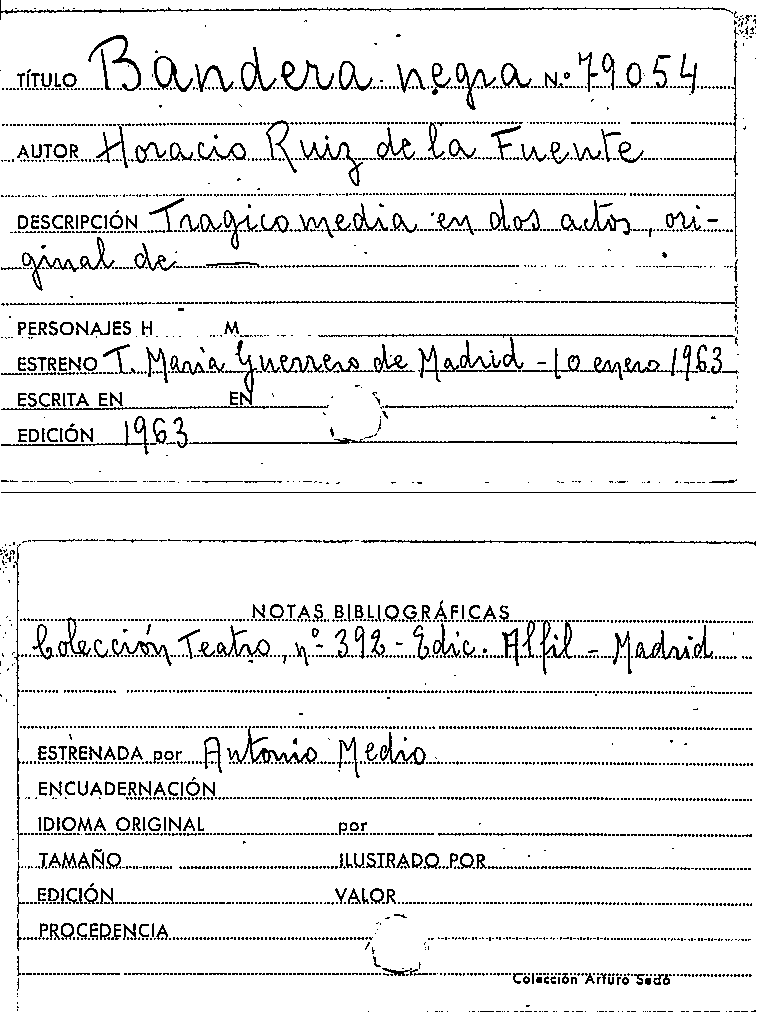 TÍTULO Bandera negra N.º 79054
AUTOR Horacio Ruiz de la Fuente
DESCRIPCIÓN Tragicomedia en dos actos, ori-
ginal de —
PERSONAJES H M
ESTRENO T. María Guerrero de Madrid - 10 enero 1963
ESCRITA EN EN
EDICIÓN 1963
NOTAS BIBLIOGRÁFICAS
Colección Teatro, nº 392 - Edic. Alfil - Madrid
ESTRENADA por Antonio Medio
ENCUADERNACIÓN
IDIOMA ORIGINAL por
TAMAÑO ILUSTRADO POR
EDICIÓN VALOR
PROCEDENCIA
Colección Arturo Sedó